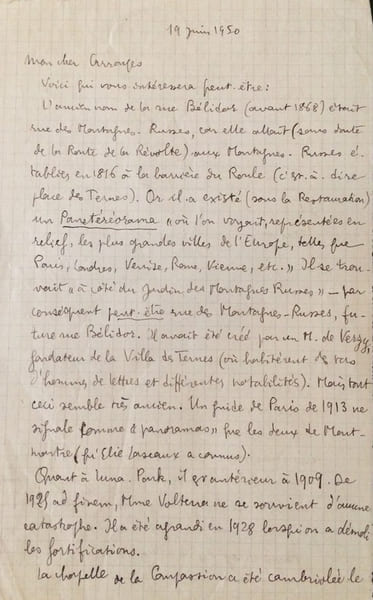 19 juin 1950
Mon cher Carrouges
Voici qui vous intéressera peut-être:
L'ancien nom de la rue Bélidor (avant 1868) était
rue des Montagnes-Russes, car elle allait (sans doute
de la Route de la Révolte) aux Montagnes-Russes é-
tablies en 1816 à la barrière du Roule (c'est-à-dire
place des Ternes). Or il a existé (sous la Restauration)
un Panstéréorama « où l'on voyait, représentées en
relief, les plus grandes villes de l'Europe, telles que
Paris, Londres, Venise, Rome, Vienne, etc. » Il se trou-
vait « à côté du Jardin des Montagnes Russes » — par
conséquent peut-être rue des Montagnes-Russes, fu-
ture rue Bélidor. Il avait été créé par un M. de
fondateur de la Villa des Ternes (où habitèrent des
d'hommes de lettres et différentes notabilités). Mais tout
ceci semble très ancien. Un guide de Paris de 1913 ne
signale comme « panoramas » que les deux de Mont-
martre (qu'Elie Lascaux a connus).
Quant à Luna-Park, il est antérieur à 1909. De
1925 ad finem, Mme Voltena ne se souvient d'aucune
catastrophe. Il a été agrandi en 1928 lorsqu'on a démoli
les fortifications.
La chapelle de la Compassion a été cambriolée le